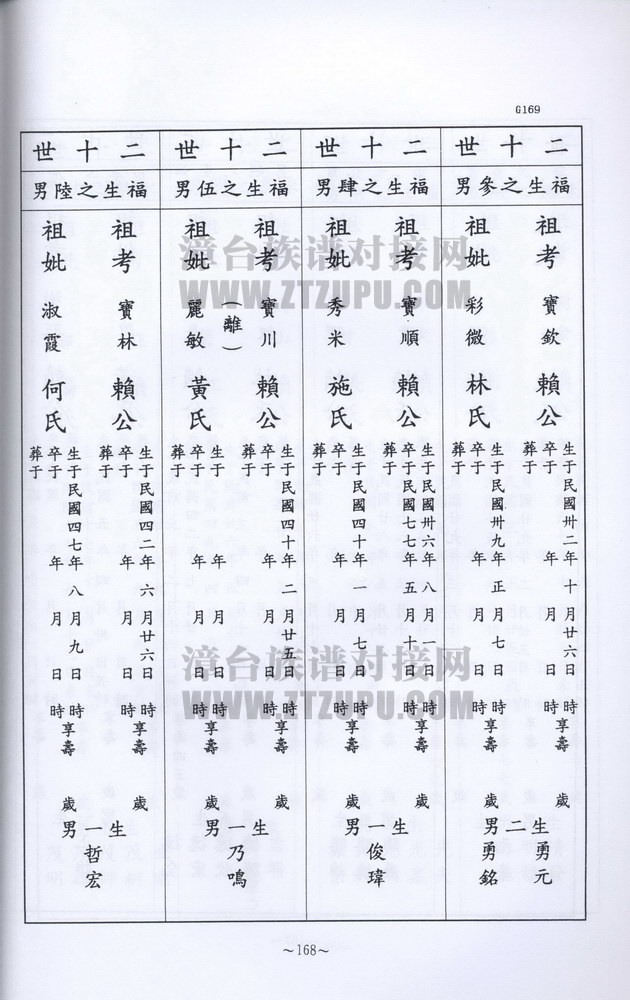 G169
二十世
福生之參男
祖考 寶欽 賴公
生于民國卅二年 十月廿六日 時
卒于 年 月 日 時享壽 歲
葬于
祖妣 彩微 林氏
生于民國卅九年 正月七日 時
卒于 年 月 日 時享壽 歲
葬于
生二男
勇元
勇銘
二十世
福生之肆男
祖考 寶順 賴公
生于民國卅六年 八月 日 時
卒于民國七七年 五月十日 時享壽 歲
葬于
祖妣 秀米 施氏
生于民國四十年 一月七日 時
卒于 年 月 日 時享壽 歲
葬于
生一男
俊瑋
二十世
福生之伍男
祖考 寶川 賴公
生于民國四十年 二月廿五日 時
卒于 年 月 日 時享壽 歲
葬于
(離)
祖妣 麗敏 黃氏
生于 年 月 日 時
卒于 年 月 日 時享壽 歲
葬于
生一男
乃鳴
二十世
福生之陸男
祖考 寶林 賴公
生于民國四二年 六月廿六日 時
卒于 年 月 日 時享壽 歲
葬于
祖妣 淑霞 何氏
生于民國四七年 八月九日 時
卒于 年 月 日 時享壽 歲
葬于
生一男
哲宏
漳台族谱对接网
WWW.ZTZUPU.COM
漳台族谱对接网
WWW.ZTZUPU.COM
～168～